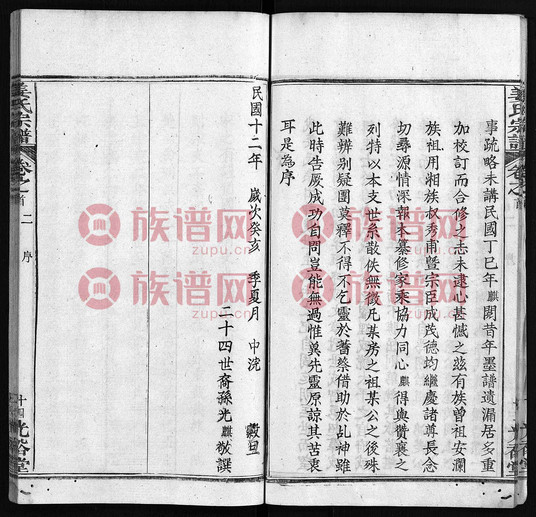 姜氏宗譜
卷之首
事疏略未講民國丁巳年麒閱昔年墨譜遺漏居多重
加校訂而合修之志未遠心甚憾之茲有族曾祖安瀾
族祖用湘族叔秀甫暨宗臣成茂德均繼慶諸尊長念
切尋源情深報本纂修家乘協力同心麒得與贊襄之
列特以本支世系散佚無徵凡某房之祖某公之後殊
難辨別疑團莫釋不得不乞靈於蓍蔡借助於乩神雖
此時告厥成功自問豈能無過惟冀先靈原諒其苦衷
耳是為序
民國十二年 歲次癸亥 季夏月 中浣 穀旦
二十四世裔孫光麒敬譔
姜氏宗譜
卷之首
二
序
光裕堂
族谱网
zupu.cn
族谱网
zupu.cn
族谱网
zupu.cn
族谱网
zupu.cn